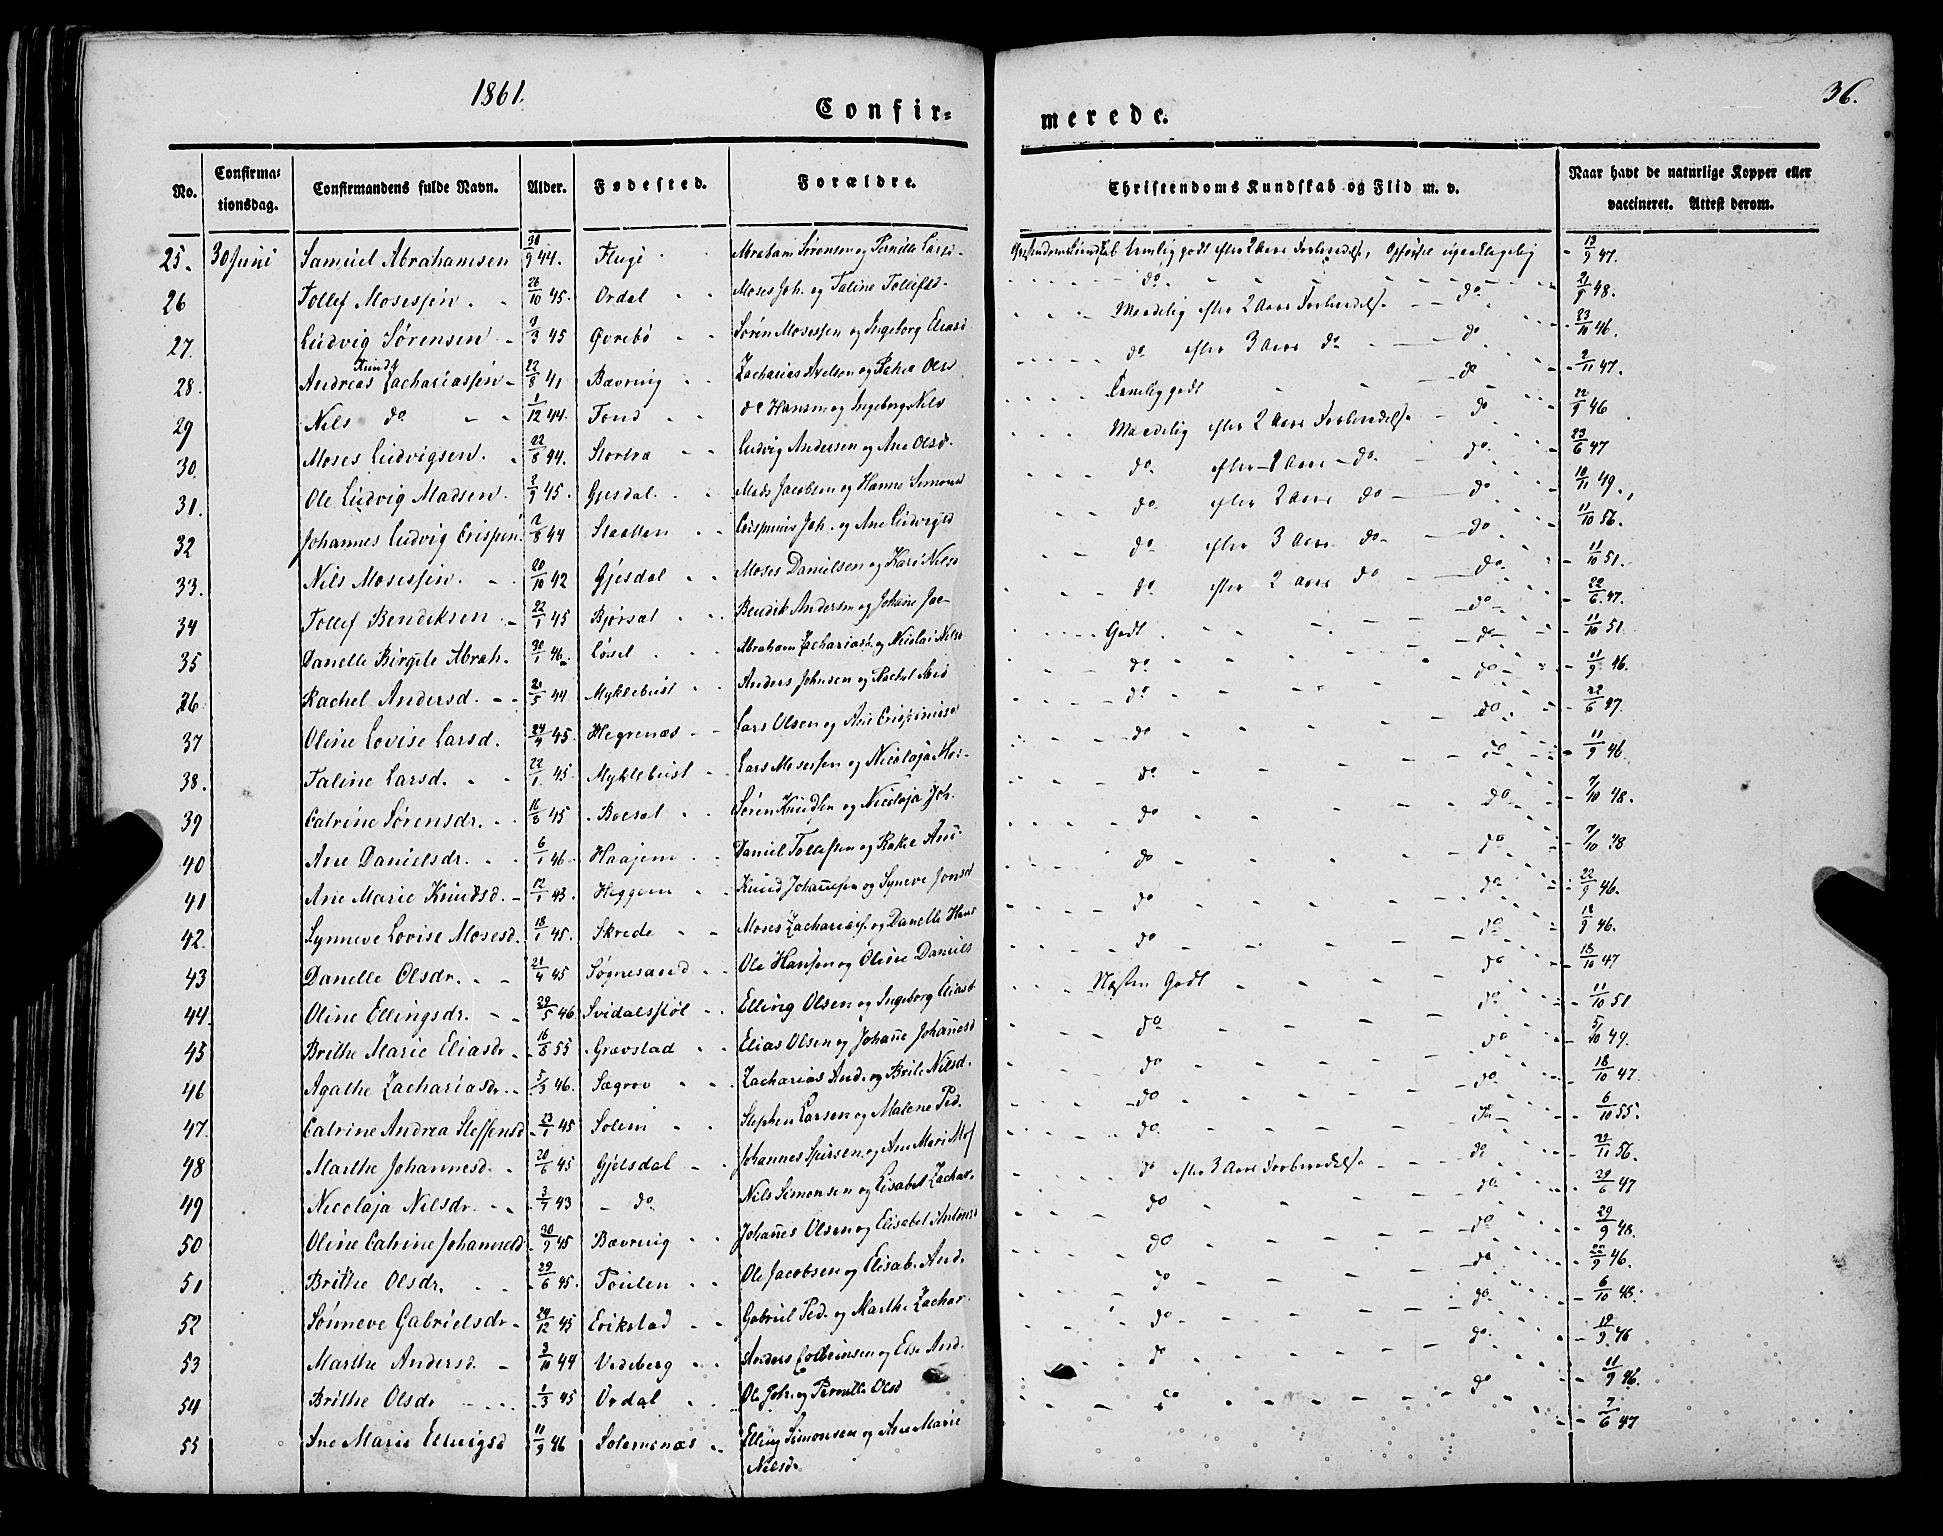 1861.
36.
Confir=
merede.
No. Confirma=tionsdag. Confirmandens fulde Navn. Alder. Fødested. Forældre. Christendoms Kundskab og Flid m. v. Naar havt de naturlige Kopper eller vaccineret. Attest derom.
25. 30 Juni Samuel Abrahamsen 30/9 44. Flugi Abraham Sørensen og Pernille Larsd. temlig godt efter 2 Aars Forberedelse, 13/9 47.
26 Tollef Mosessen 26/10 45. Ordal Moses Joh. og Taline Tollefsd. do. do 21/9 48.
27. Ludvig Sørensen 9/3 45 Øvrebø Søren Mosessen og Ingeborg Eliasd Maadelig efter 2 Aars Forberedelse do 23/10 46.
28. Andreas Knudt Zachariassen 22/8 41 Bævring Zacharias Axelsen og Olsd do efter 3 Aars do do 2/11 47.
29 Nils do 1/12 44. Fond do Hansen og Ingeborg Nils Temlig godt do 22/9 46
30. Moses Ludvigsen. 22/8 44. Stortra Ludvig Andersen og Ane Olsd. Maadelig efter 2 Aars Forberedelse do 23/6 47
31. Ole Ludvig Madsen 2/9 45. Gjesdal Mads Jacobsen og Hanne Simonsd do. efter 1 Aars do. do. 10/11 49.
32 Johannes Ludvig Crispen 2/8 44 Stallen Crispinus Joh. og Ane Ludvigsd do efter 2 Aars do do 11/10 56.
33. Nils Mosessen. 20/10 42 Gjesdal Moses Danielsen og Kari Nilsd do efter 3 Aars do do 11/10 51.
34 Tollef Bendiksen 22/1 45 Bjørsat Bendik Andersen og Johane Jac- do efter 2 Aars do do. 22/6 47.
35 Danelle Birgite Abrah. 30/1 46. Løset Abraham Zachariasd. og Nicolai Nilsd Godt do 11/10 51.
36 Rachel Andersd. 2/5 44 Myklebust Anders Johnsen og Rachel do do 11/9 46.
37 Oline Lovise Larsd. 24/4 45. Hegrenæs Lars Olsen og Ane Crispinusd do do 22/6 47.
38. Taline Larsd. 22/1 45. Myklebust Lars Mosessen og Nicolaja do do 11/9 46.
39 Catrine Sørensdr. 16/3 45 Boesat Søren Knudsen og Nicolaja Joh. do do 7/10 48.
40 Ane Danielsdr. 6/1 46. Haajem Daniel Tollefsen og Rakel And- do do 7/10 48
41 Ane Marie Knudsd. 12/1 43. Heggem Knud Johannesen og Syneve Jonsd do do 22/9 46.
42. Synneve Lovise Mosesd. 18/1 45. Skrede Moses Zachariass. og Danelle Hans do do 18/9 46.
43 Danelle Olsdr. 21/4 45 Søgnesand Ole Hansen og Oline Daniels do do 18/10 47
44. Oline Ellingsdr. 29/5 46. Svidalsstøl Elling Olsen og Ingeborg Eliasd Næsten Godt do 11/10 51
45 Brithe Marie Eliasdr. 16/8 55 Grævstad Elias Olsen og Johane Johanesd do do 5/10 49.
46 Agathe Zachariasdr. 5/3 46. Sægrov Zacharias And. og Brite Nilsd. do do 18/10 47.
47. Catrine Andrea Steffensd 23/1 45 Solem Stephen Larsen og Malene Ped. do do 6/10 55.
48 Marthe Johannesd. 20/6 45 Gjelsdal Johannes og Ane Mari Mos do do 22/11 56.
49 Nicolaja Nilsdr. 3/7 43 do. Nils Simonsen og Elisabet Zachar. do efter 3 Aars Forberedelse do 29/6 47
50 Oline Catrine Johannesd 30/9 45 Bævring Johanes Olsen og Elisabet Antonsd do do 29/9 48.
51 Brithe Olsdr. 29/6 45. Foulen Ole Jacobsen og Elisab. And. do do. 22/9 46.
52 Sønneve Gabrielsdr. 24/12 45 Erikstad Gabriel Ped. og Marthe Zachar do do. 6/10 48.
53 Marthe Andersd. 3/10 44 Vedeberg Anders Colbeinsen og Else And. do do. 19/9 46
54 Brithe Olsdr 1/3 45 Ordal Ole Joh. og Pernille Olsd do do 11/9 46.
55 Ane Marie Ellingsd 11/9 46 Solemenæs Elling Simonsen og Ane Marie 7/6 47
Nilsd.